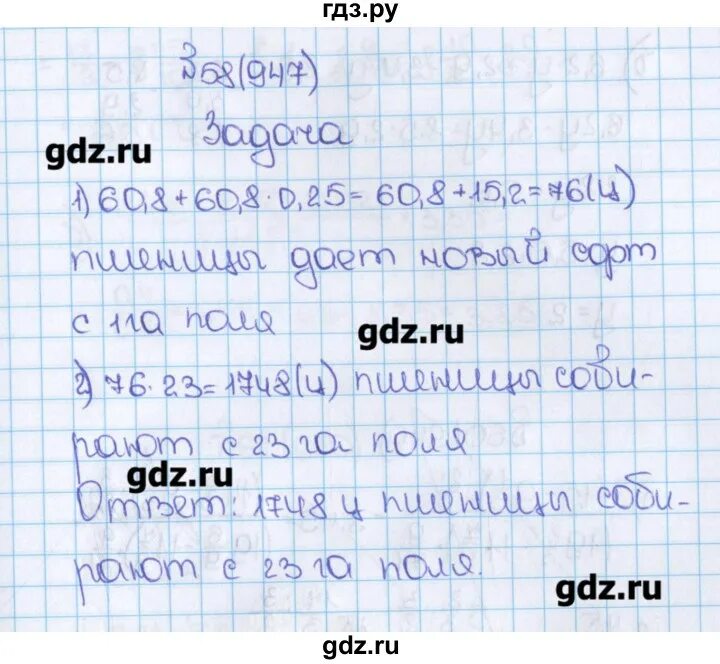 гдз.ру
№58(947)
Задача
gdz.ru
1) 60,8 + 60,8 · 0,25 = 60,8 + 15,2 = 76(ц)
пшеницы дает новый сорт
с 1 га поля
gdz.ru
2) 76 · 23 = 1748(ц) пшеницы соби-
рают с 23 га поля
gdz.ru
Ответ: 1748 ц пшеницы соби-
рают с 23 га поля.
gdz.ru
gdz.ru